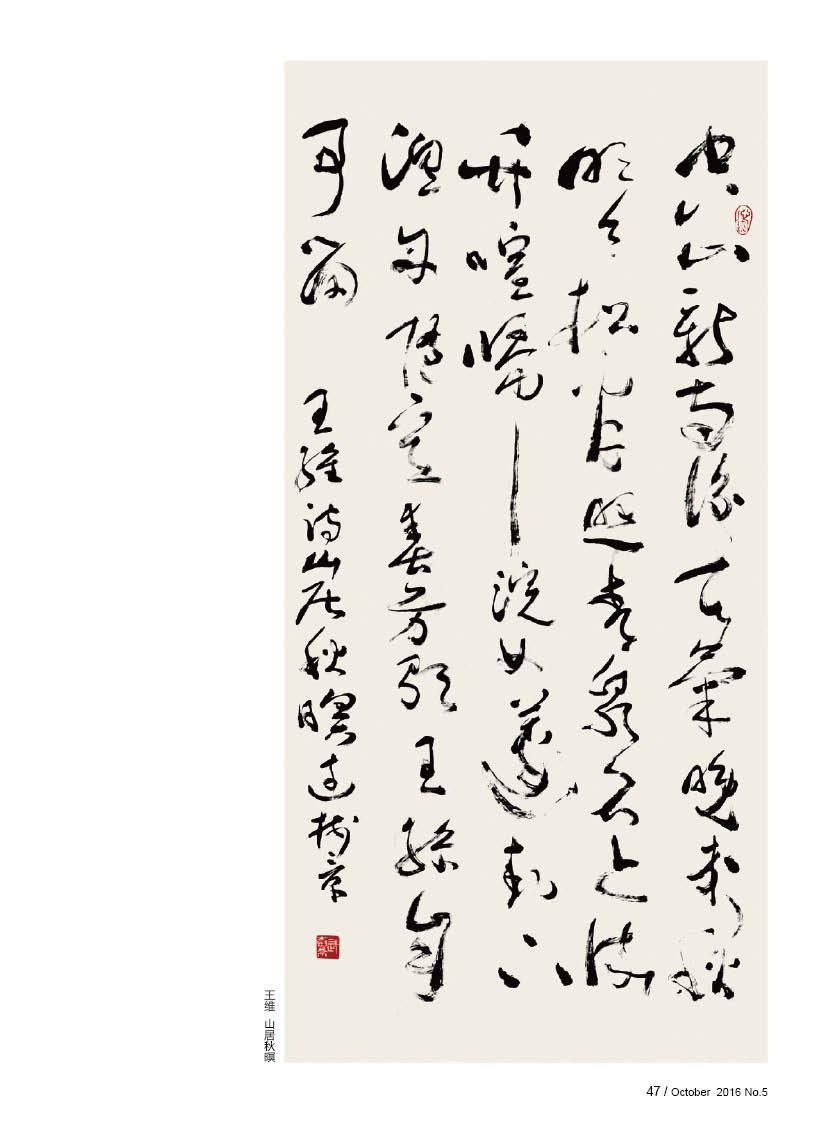 空山新雨後天氣晚來秋
明月松間照青泉石上流
竹喧歸浣女蓮動下
漁舟隨意春芳歇王孫自
可留 王維詩山居秋暝
王维 山居秋暝
47 / October 2016 No.5